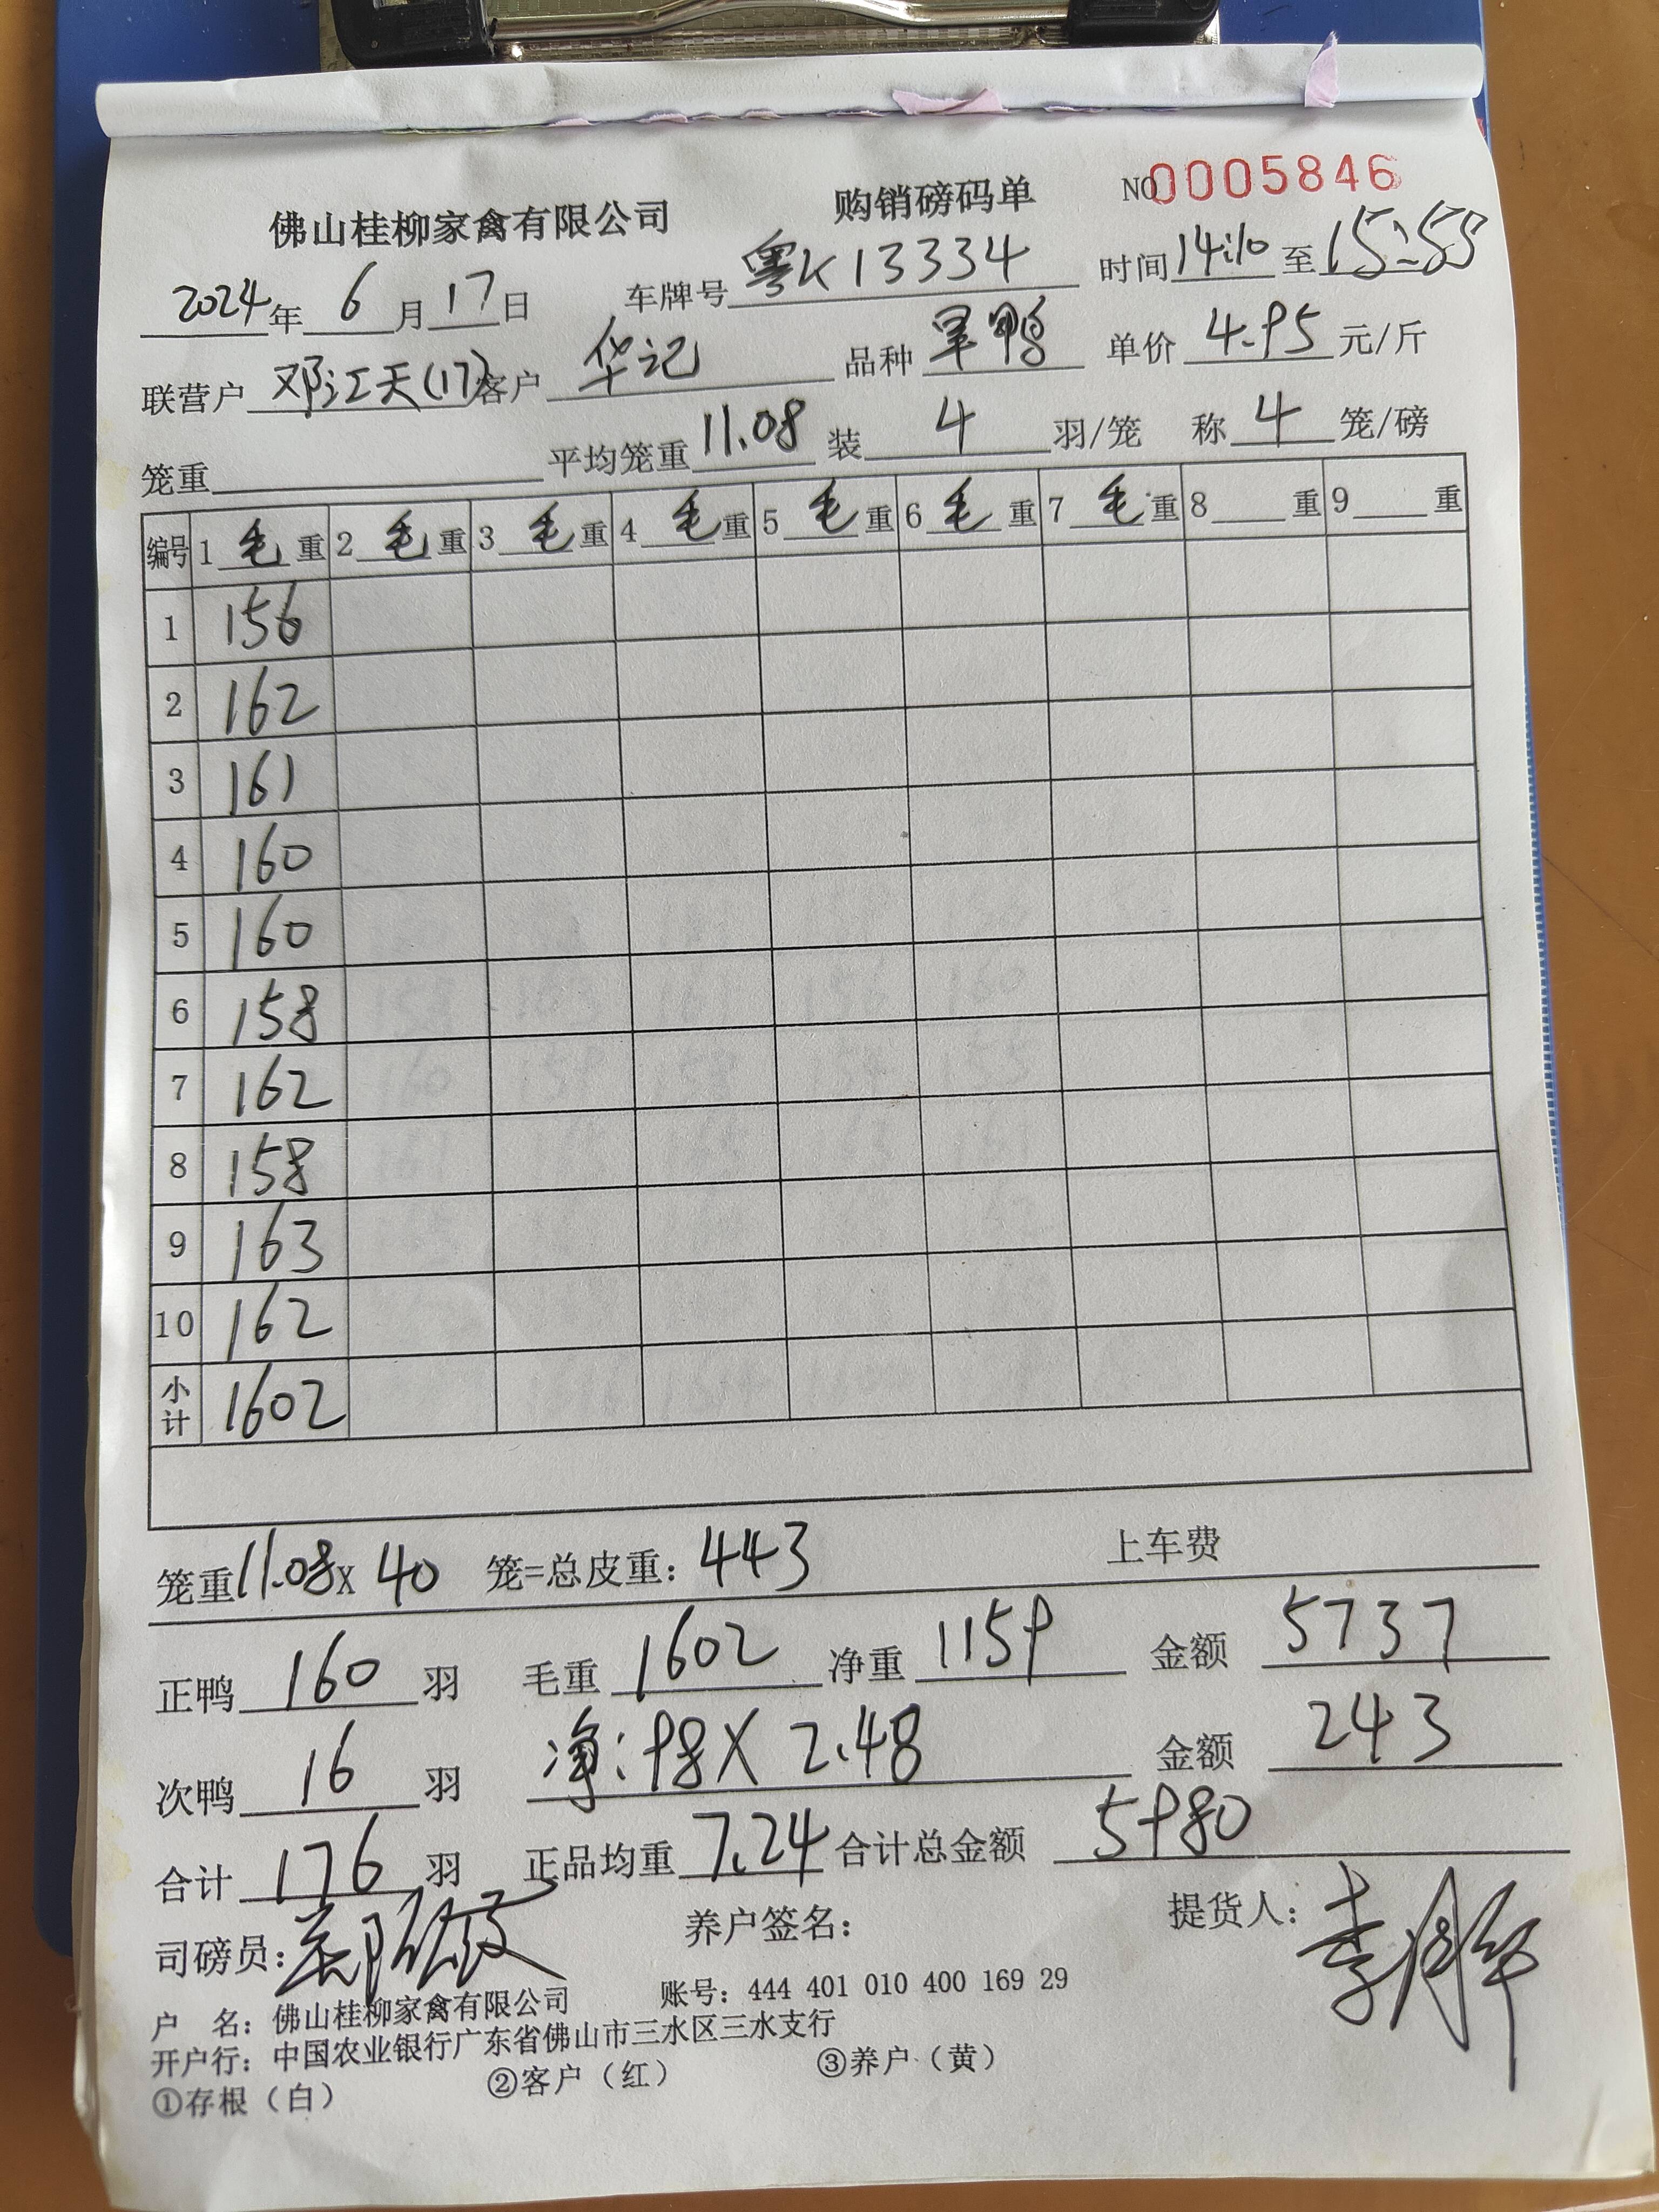 佛山桂柳家禽有限公司 购销磅码单 NO 0005846
2024年6月17日 车牌号 粤K13334 时间 14:10 至 15:55
联营户 邓江天(17) 客户 华记 品种 单价 4.95 元/斤
笼重 平均笼重 11.08 装 4 羽/笼 称 4 笼/磅
编号 1 毛重 2 毛重 3 毛重 4 毛重 5 毛重 6 毛重 7 毛重 8 重 9 重
1 156
2 162
3 161
4 160
5 160
6 158
7 162
8 158
9 163
10 162
小计 1602
笼重 11.08 X 40 笼=总皮重: 443 上车费
正鸭 160 羽 毛重 1602 净重 1159 金额 5737
次鸭 16 羽 净: 98X 2.48 金额 243
合计 176 羽 正品均重 7.24 合计总金额 5980
司磅员: 养户签名: 提货人:
户 名: 佛山桂柳家禽有限公司 账号: 444 401 010 400 169 29
开户行: 中国农业银行广东省佛山市三水区三水支行
①存根（白） ②客户（红） ③养户（黄）